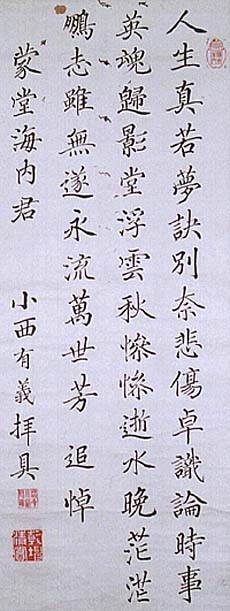 人生真若夢訣別奈悲傷卓識論時事
英魂歸影堂浮雲秋慘慘逝水晩茫茫
鵬志雖無遂永流萬世芳 追悼
蒙堂海内君 小西有義拝具